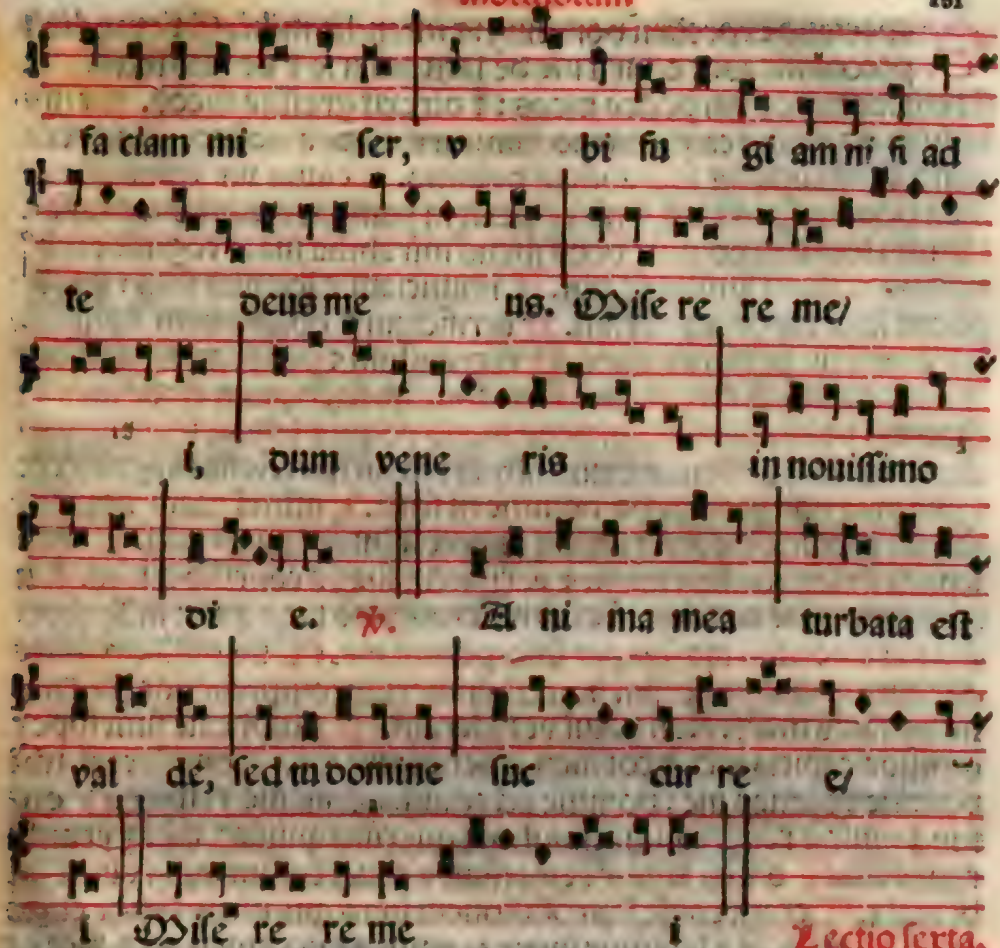 mortuorum 191
fa ciam mi ſer, v bi fu gi am ni ſi ad
te deus me us. Miſe re re me/
i, dum vene ris in nouiſſimo
di e. ℣. A ni ma mea turbata eſt
val de, ſed tu domine ſuc cur re e/
i. Miſe re re me i
Lectio ſexta.